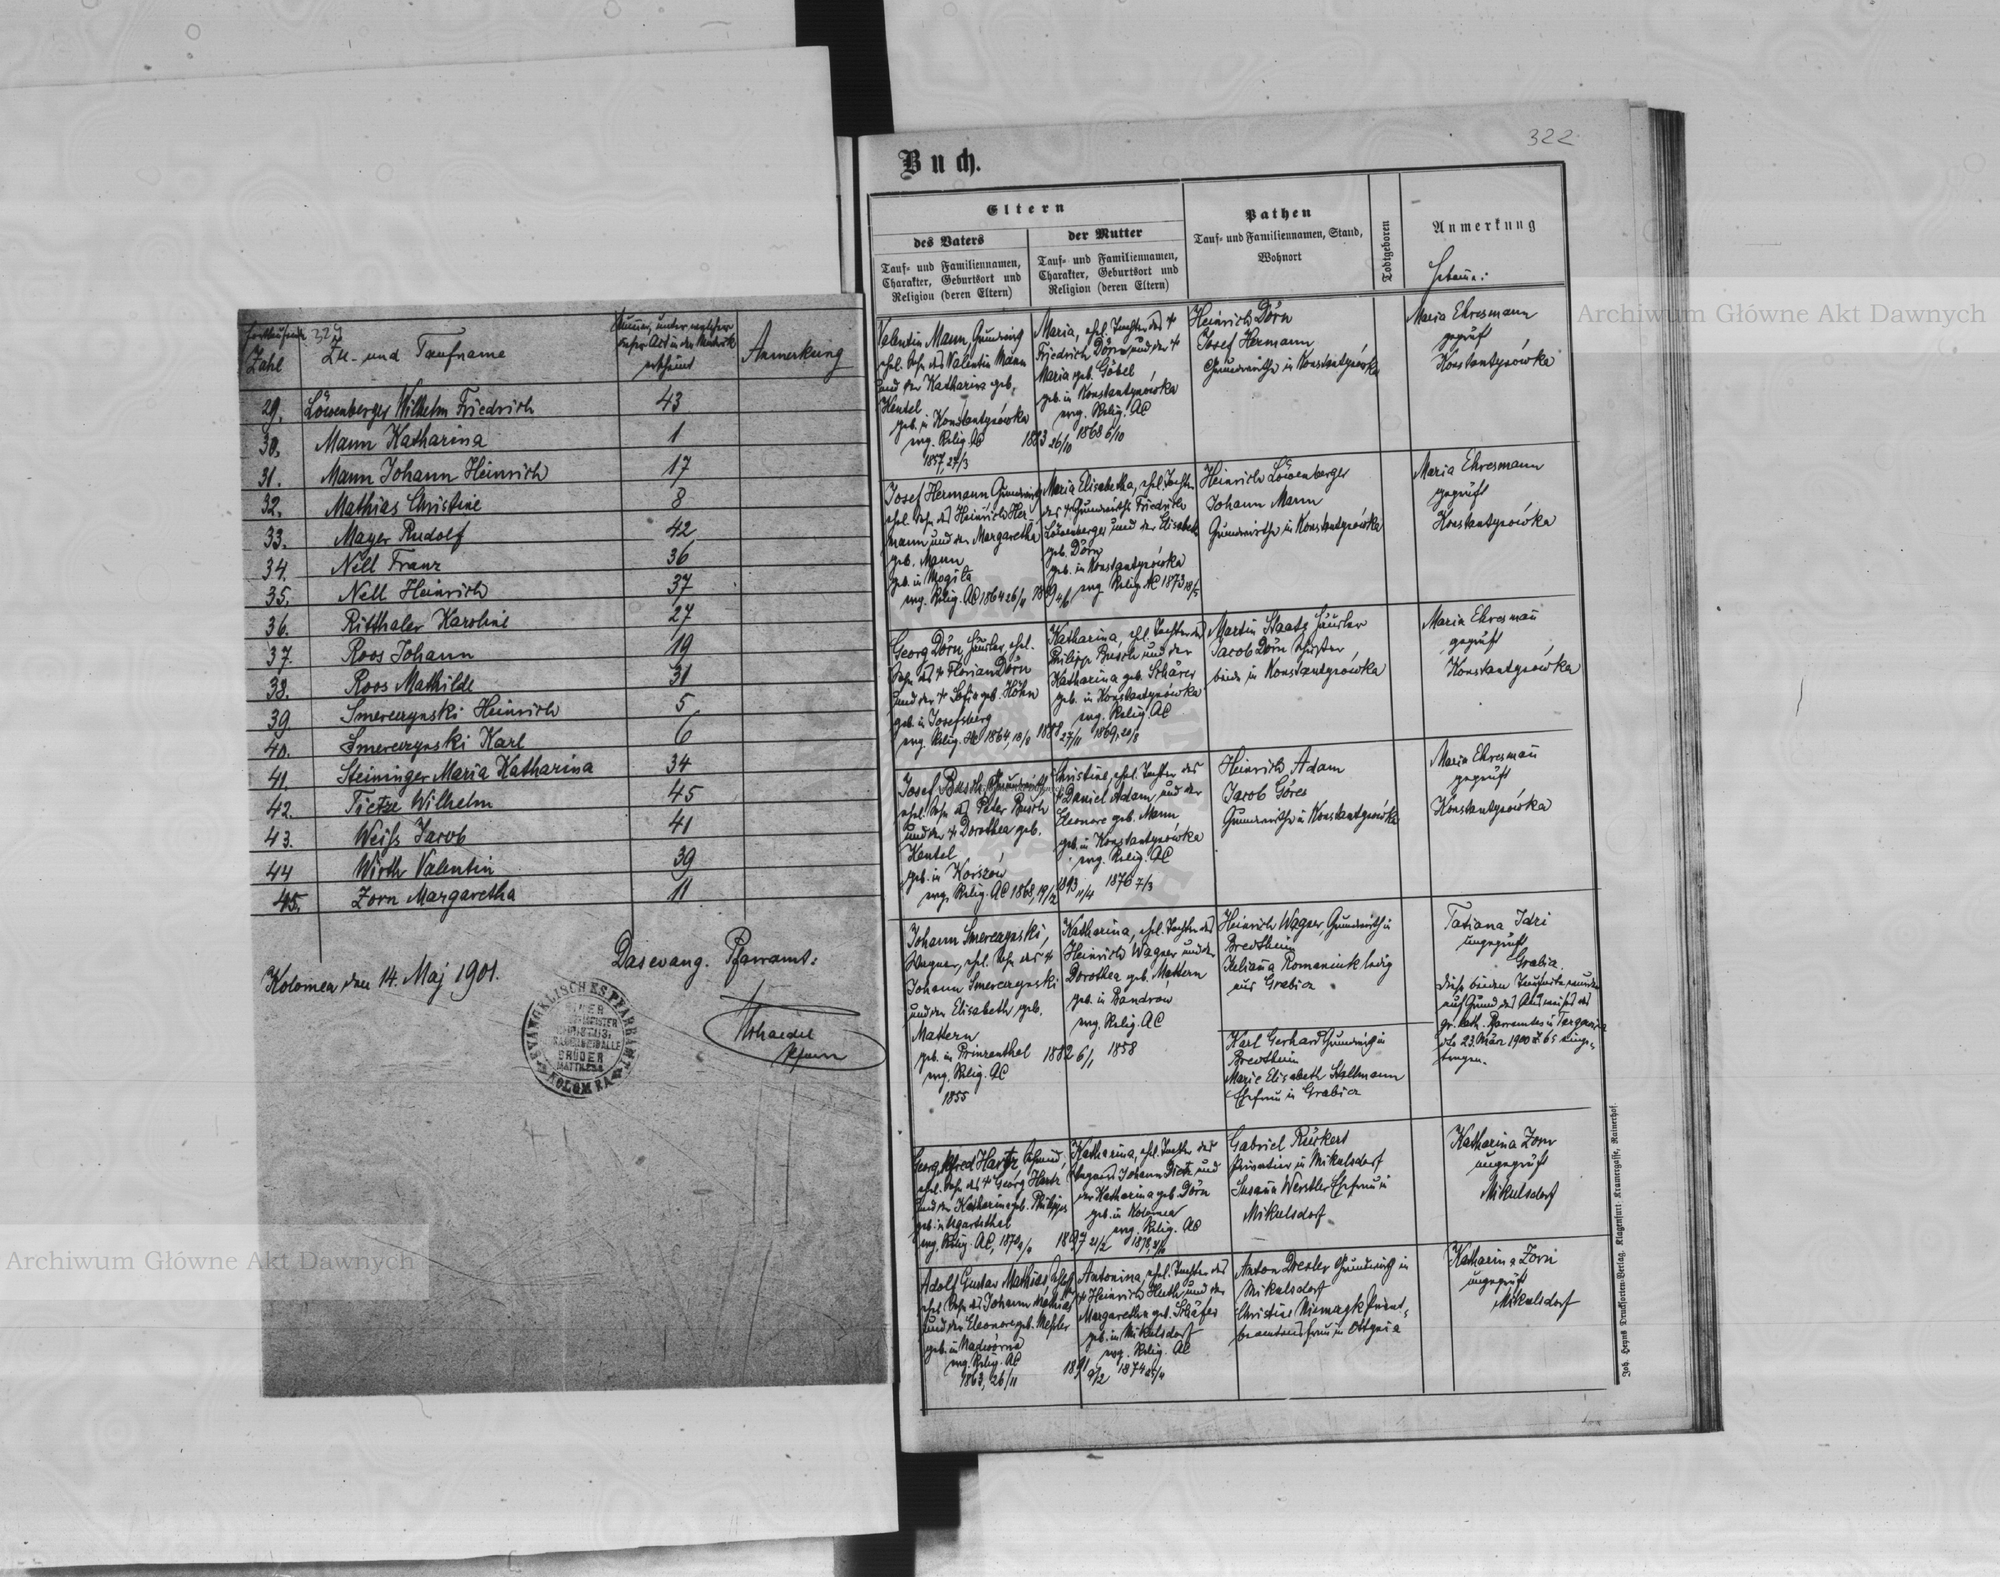 322
Buch.
Eltern
des Vaters
der Mutter
Tauf= und Familiennamen,
Charakter, Geburtsort und
Religion (deren Eltern)
Tauf= und Familiennamen,
Charakter, Geburtsort und
Religion (deren Eltern)
Pathen
Tauf= und Familiennamen, Stand,
Wohnort
Todtgeboren
Anmerkung
Zahl
Zu- und Taufname
Anmerkung
29. Löwenberger Wilhelm Friedrich 43
30. Mann Katharina 1
31. Mann Johann Heinrich 17
32. Mathias Christine 8
33. Mayer Rudolf 42
34. Nell Franz 36
35. Nell Heinrich 37
36. Ritthaler Karoline 27
37. Roos Johann 19
38. Roos Mathilde 31
39 Smereczynski Heinrich 5
40. Smereczynski Karl 6
41. Steininger Maria Katharina 34
42. Tietze Wilhelm 45
43. Weiss Jacob 41
44 Wirth Valentin 39
45. Zorn Margaretha 11
Das evang. Pfarramt:
Kolomea den 14. Maj 1901.
EVANGELISCHES PFARRAMT
KOLOMEA
Valentin Mann, Grundwirth
ehel. Sohn des Valentin Mann
und der Katharina geb.
Hentel
geb. in Konstantynówka
evg. Relig. AC
1857, 27/3
Maria, ehel. Tochter des †
Friedrich Dörn und der †
Maria geb. Göbel
geb. in Konstantynówka
evg. Relig. AC
1883 26/10 1868 6/10
Heinrich Dörn
Josef Hermann
Grundwirthe in Konstantynówka
Maria Ehresmann
geprüft
Konstantynówka
Josef Hermann Grundwirth
ehel. Sohn des Heinrich Her-
mann und der Margaretha
geb. Mann
geb. in Mogila
evg. Relig. AC 1864 26/4
Maria Elisabetha, ehel. Tochter
des † Grundwirths Friedrich
Löwenberger und der Elisabeth
geb. Dörn
geb. in Konstantynówka
evg. Relig. AC 1873 18/5
Heinrich Löwenberger
Johann Mann
Grundwirthe in Konstantynówka
Maria Ehresmann
geprüft
Konstantynówka
Georg Dörn, Häusler, ehel.
Sohn des † Florian Dörn
und der † Sofia geb. Höhn
geb. in Josefsberg
Katharina, ehel. Tochter des
Philipp Busch und der
Katharina geb. Schärer
geb. in Konstantynówka
evg. Relig. AC
1888 27/11 1869, 20/8
Martin Staatz Häusler
Jacob Dörn Schuster
beide in Konstantynówka
Maria Ehresmañ
geprüft
Konstantynówka
Josef Busch Grundwirth
ehel. Sohn des Peter Busch
und der † Dorothea geb.
Hentel
geb. in Korszów
evg. Relig. AC 1868, 19/2
Christine, ehel. Tochter des
† Daniel Adam und der
Eleonore geb. Mann
geb. in Konstantynówka
evg. Relig. AC
1893 11/4 1876 7/3
Heinrich Adam
Jacob Göres
Grundwirthe in Konstantynówka
Maria Ehresmañ
geprüft
Konstantynówka
Johann Smereczynski,
Wagner, ehel. Sohn des †
Johann Smereczynski
und der Elisabeth geb.
Mattern
geb. in Prinzenthal
evg. Relig. AC
1855
Katharina, ehel. Tochter des
Heinrich Wagner und der
Dorothea geb. Mattern
geb. in Bandrów
evg. Relig. AC
1882 6/1 1858
Heinrich Wagner, Grundwirth in
Bredtheim
Juliaña Romaniuk ledig
aus Grabicz
Karl Gerhard Grundwirth in
Bredtheim
Marie Elisabeth Stallmann
Ehefrau in Grabicz
Tatiana Idzi
ungeprüft
Grabicz
diese beiden Taufakte wurden
auf Grund des Ausweises des
gr. kath. Pfarramtes in Targowica
dto 23. März 1900 Z. 65 einge-
tragen.
Georg Alfred Hartz, Schmied,
ehel. Sohn des † Georg Hartz
und der Katharina geb. Philipps
geb. in Ugartsthal
Katharina, ehel. Tochter des
Wagners Johann Dietz und
der Katharina geb. Dörn
geb. in Kolomea
evg. Relig. AC
Gabriel Rückert
Privatier in Mikulsdorf
Susaña Werstler Ehefrau in
Mikulsdorf
Katharina Zorn
ungeprüft
Mikulsdorf
ehel. Sohn des Johann Mathias
und der Eleonore geb. Messler
geb. in Nadwórna
evg. Relig. AC
1863, 26/11
Antonina, ehel. Tochter des
† Heinrich Huth und der
Margaretha geb. Schäfer
geb. in Mikulsdorf
evg. Relig. AC
1891 9/2 1874 25/4
Anton Drexler Grundwirth in
Mikulsdorf
Katharina Zorn
ungeprüft
Mikulsdorf
Joh. Heyns Drucksorten-Verlag, Klagenfurt, Kramergasse, Rainerhof.
Archiwum Główne Akt Dawnych
Archiwum Główne Akt Dawnych